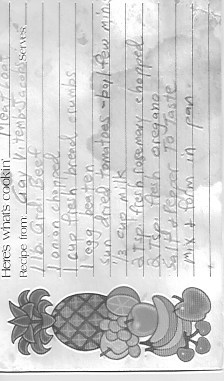 Here's what's cookin' Meat Loaf
Recipe from Gay Serves
1 lb Grd Beef
1 onion chopped
1 cup fresh bread crumbs
1 egg beaten
sun dried tomatoes - boil few min
1/3 cup milk
2 Tsp fresh rosemary chopped
2 Tsp fresh oregano
salt & pepper to taste
mix & form in pan